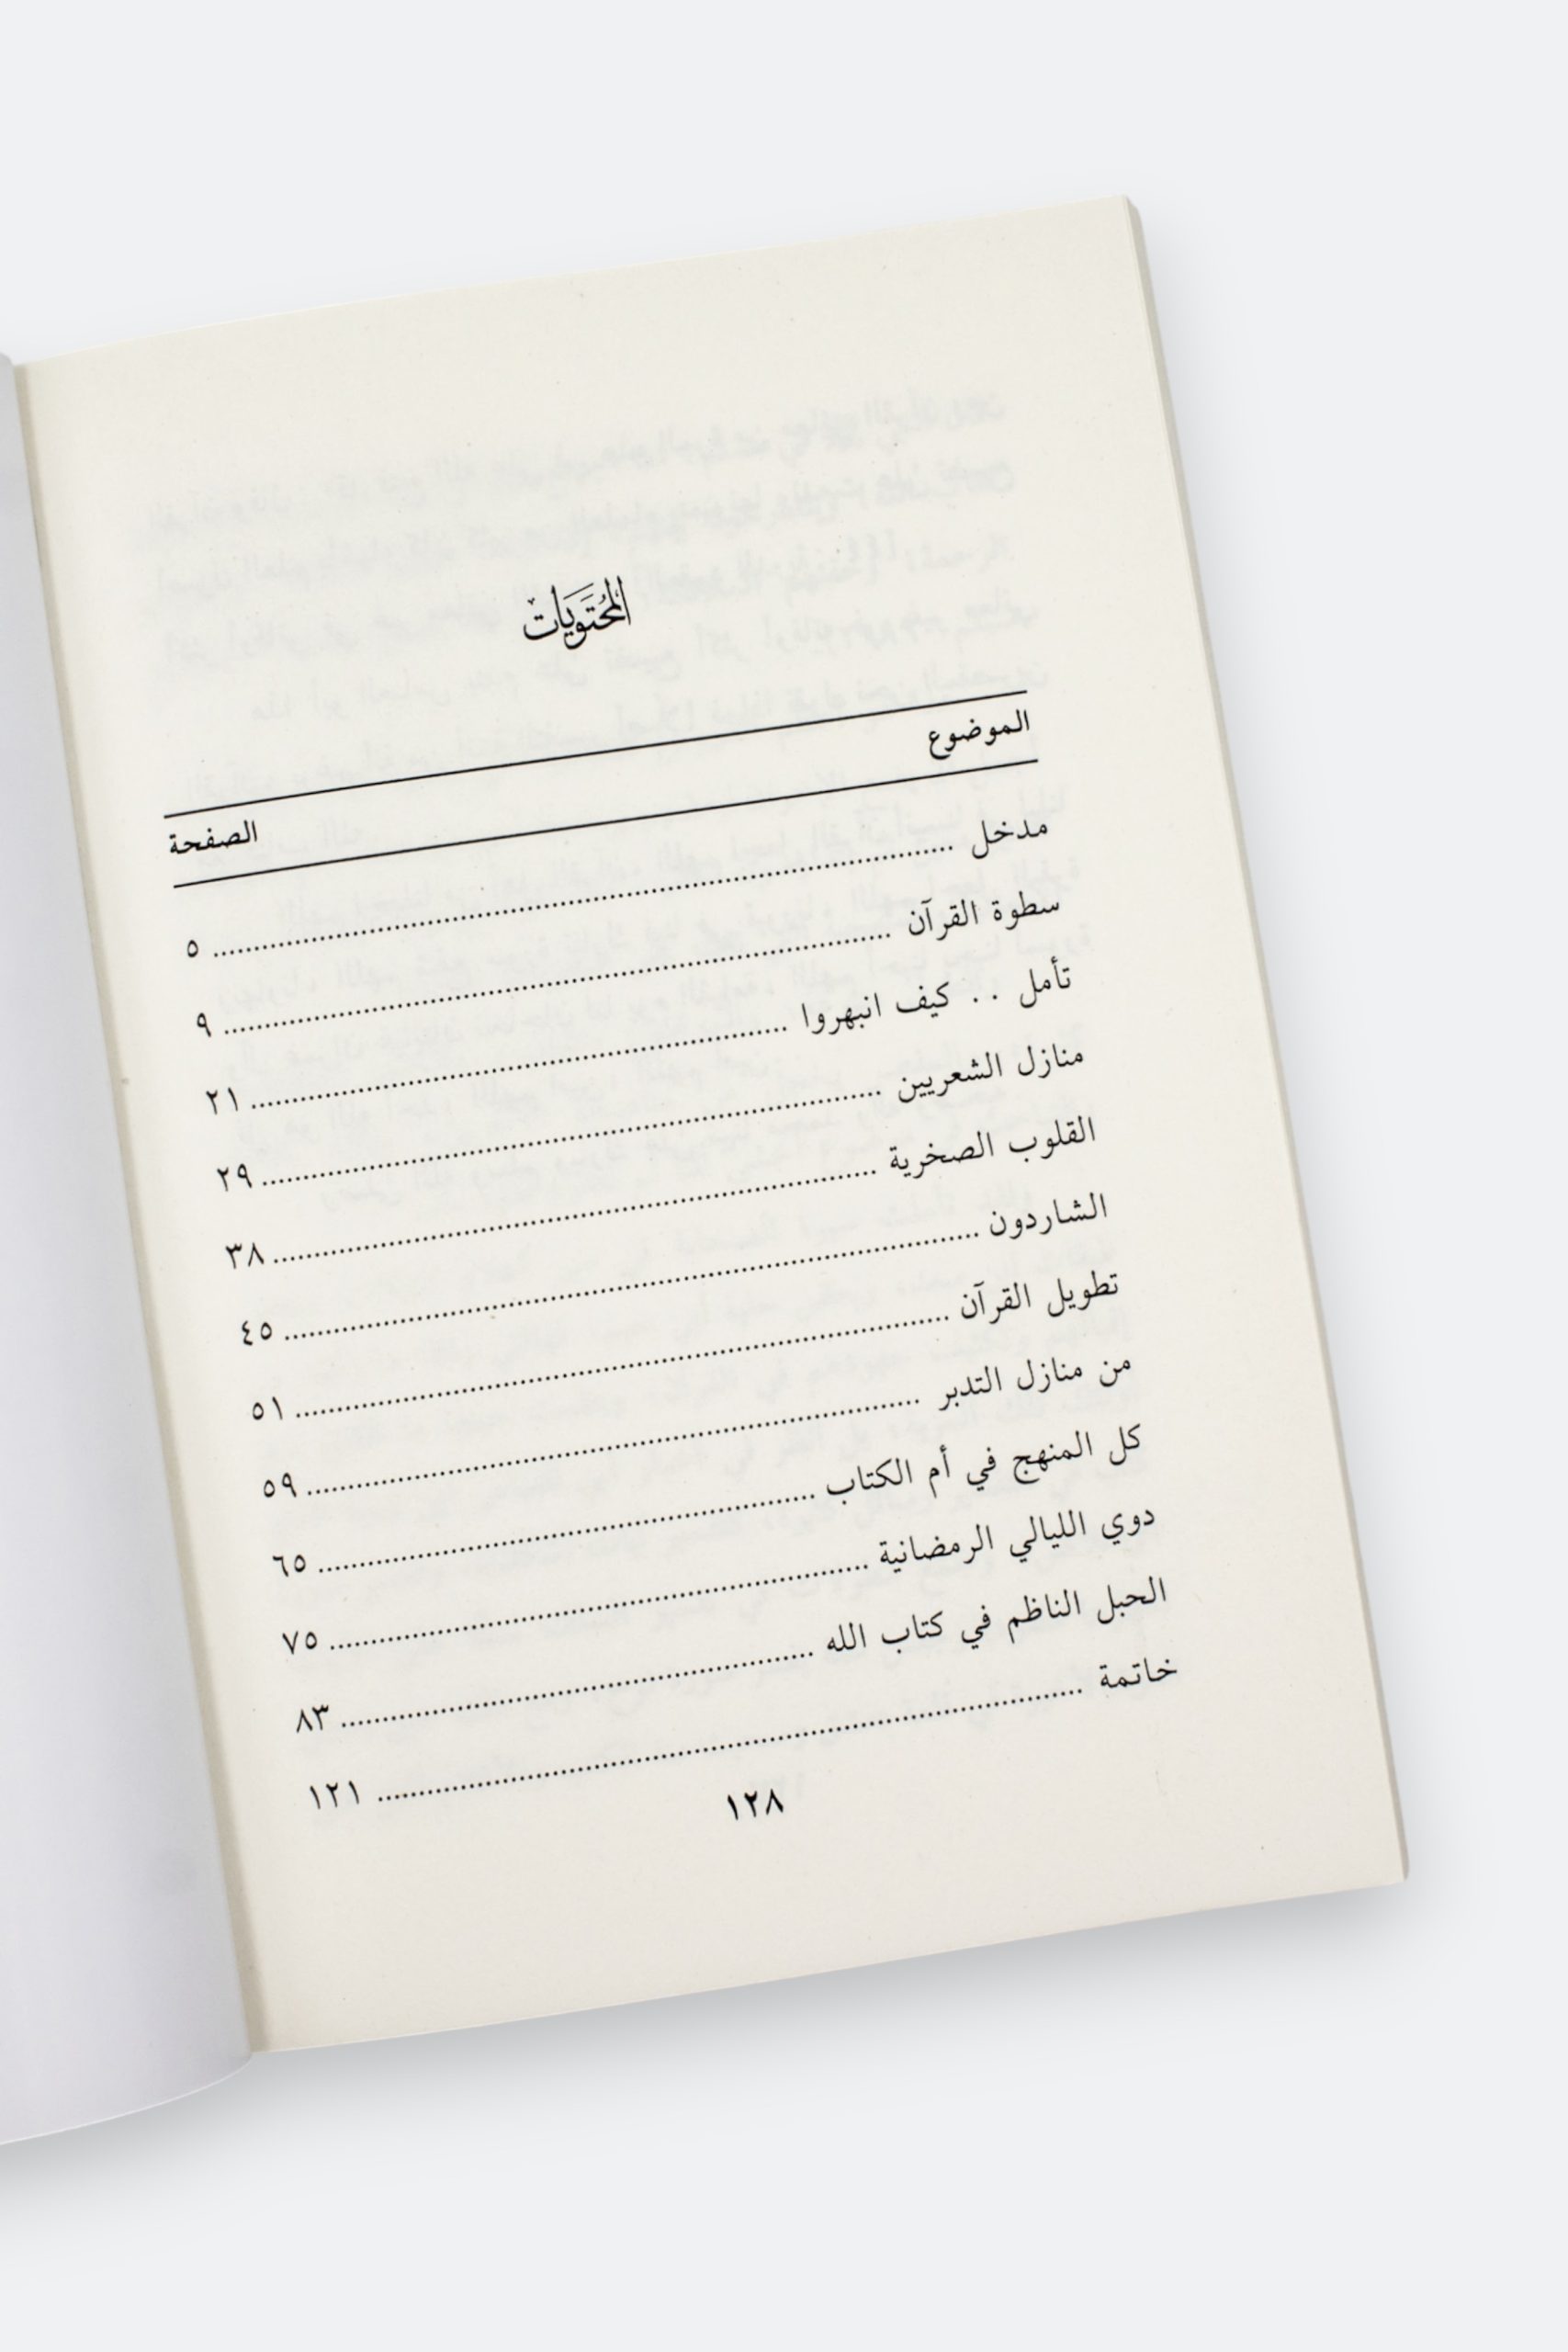 المُحتَوَيات
الموضوع الصفحة
مدخل ..... ٥
سطوة القرآن ..... ٩
تأمل . . كيف انبهروا ..... ٢١
منازل الشعريين ..... ٢٩
القلوب الصخرية ..... ٣٨
الشاردون ..... ٤٥
تطويل القرآن ..... ٥١
من منازل التدبر ..... ٥٩
كل المنهج في أم الكتاب ..... ٦٥
دوي الليالي الرمضانية ..... ٧٥
الحبل الناظم في كتاب الله ..... ٨٣
خاتمة ..... ١٢١
١٢٨